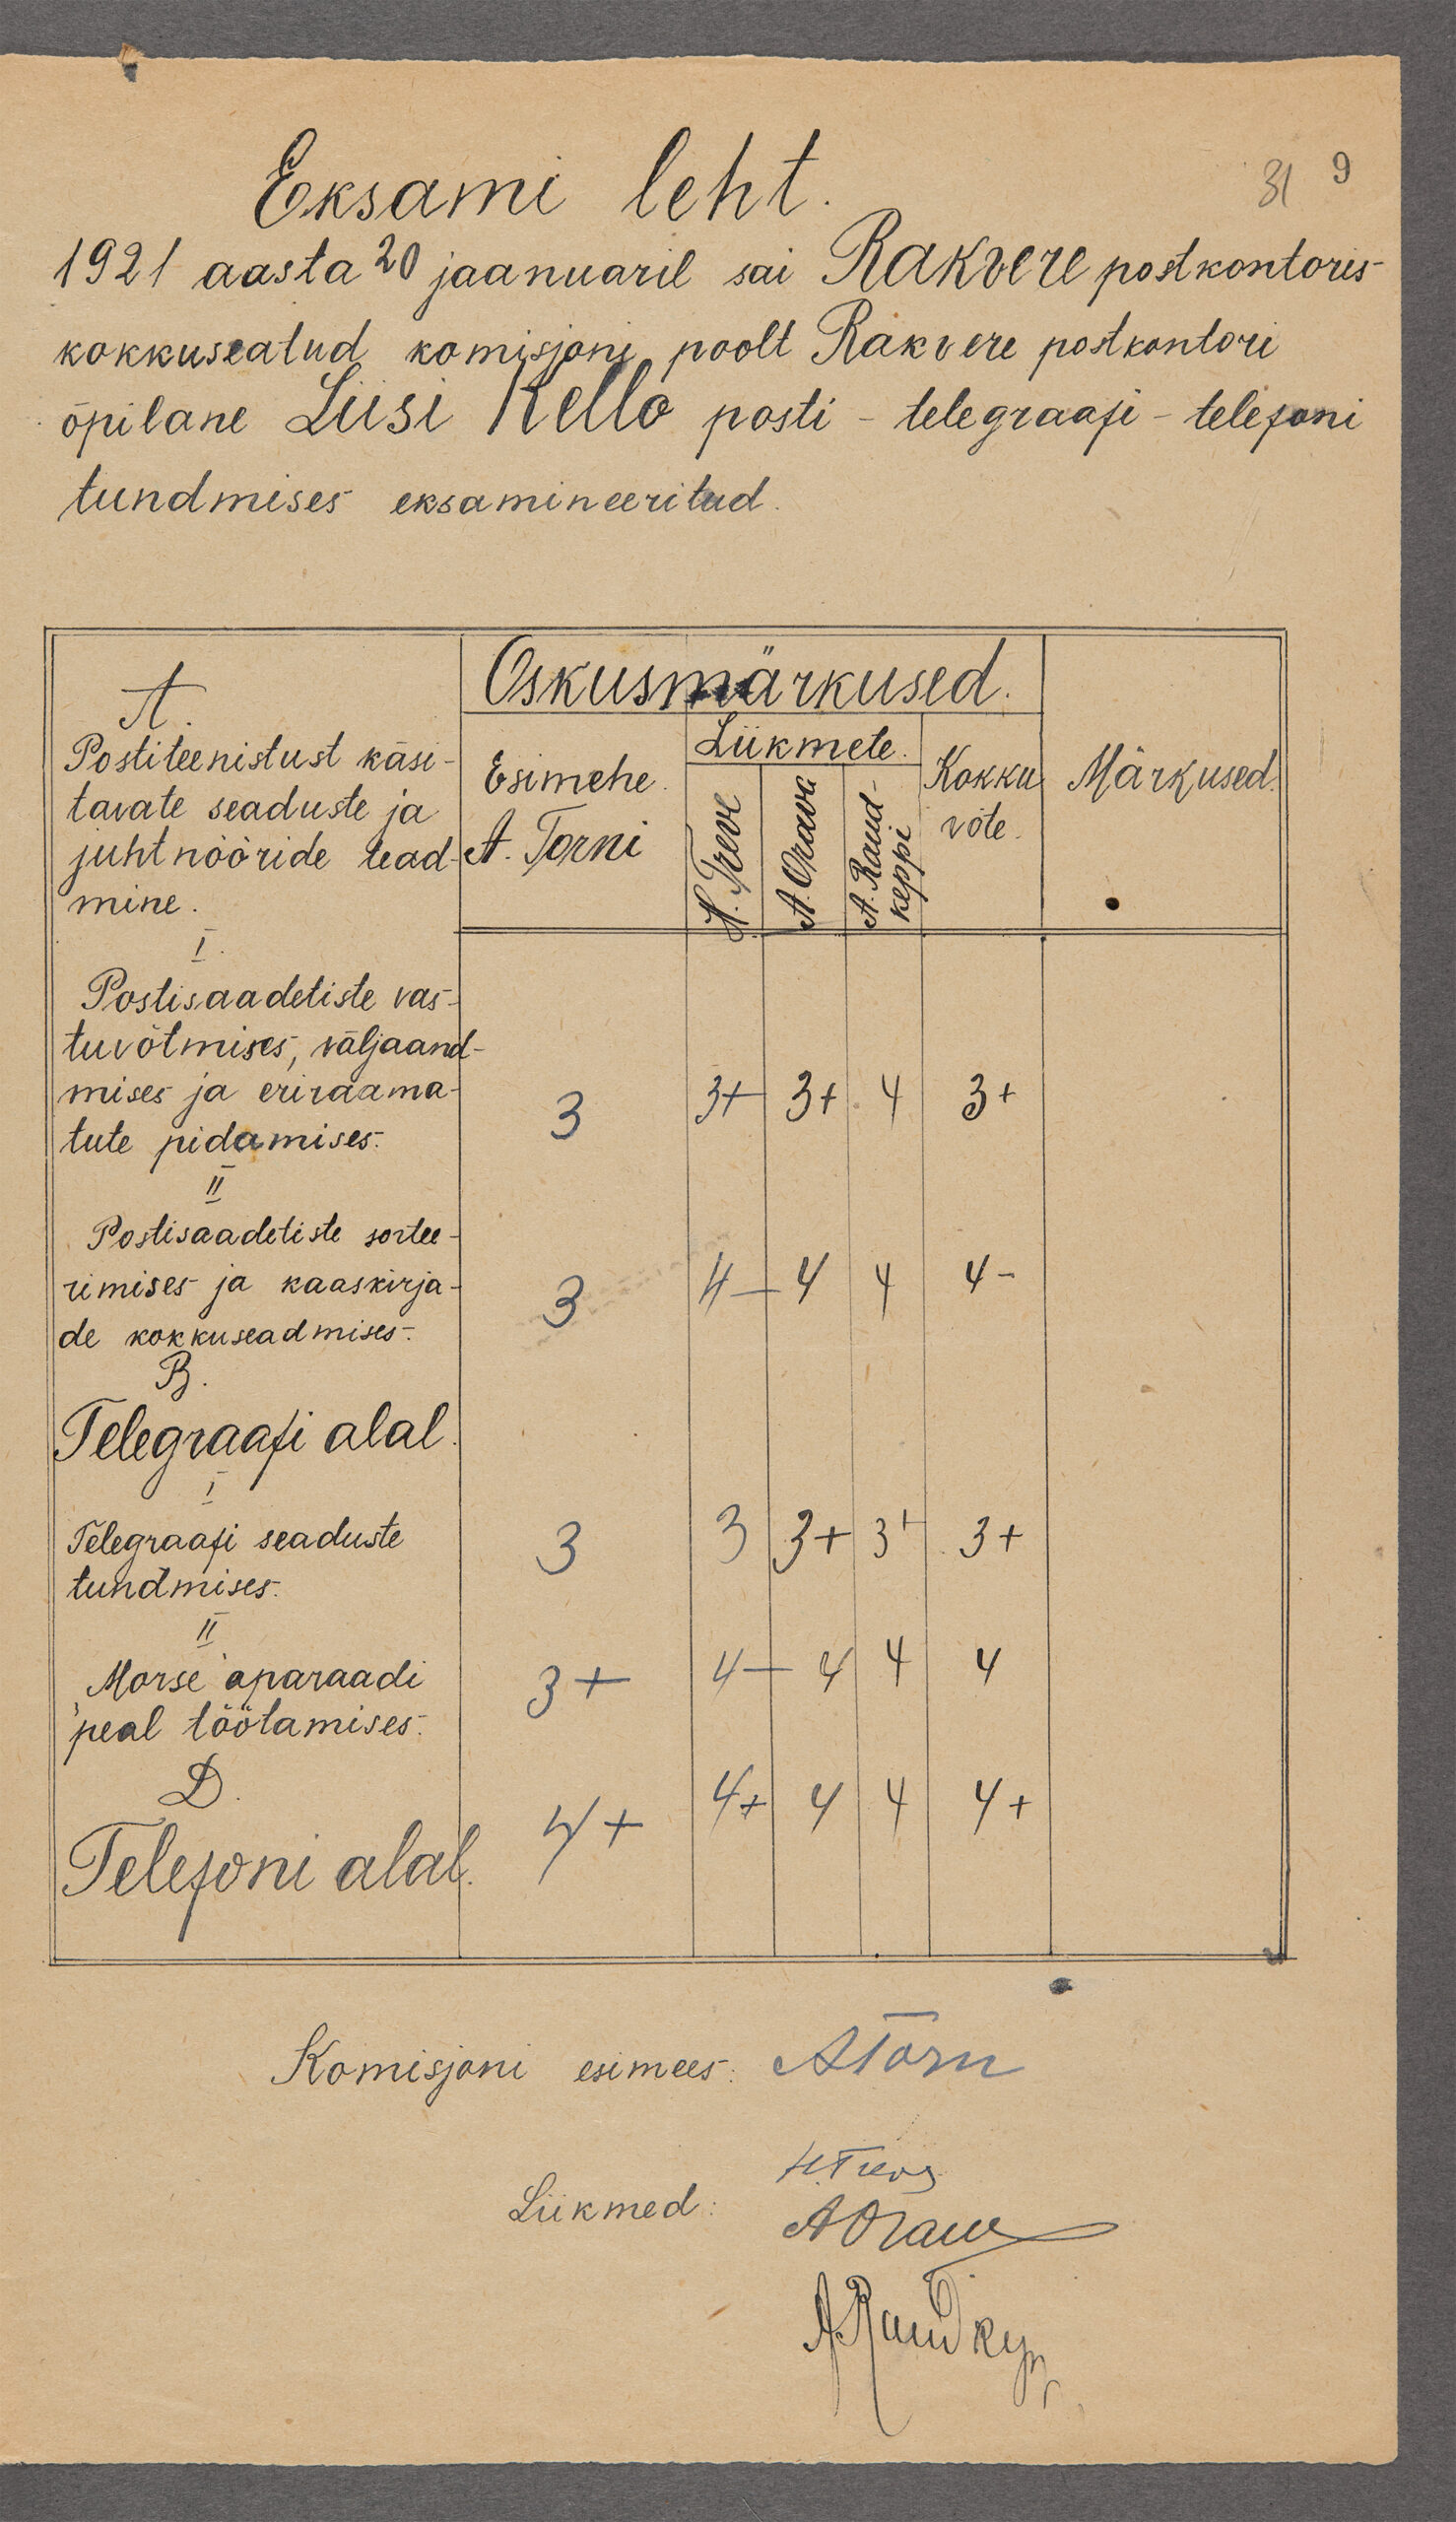 31 9
Eksami leht.
1921 aasta 20 jaanuaril sai Rakvere postkontoris
kokkuseatud komisjoni poolt Rakvere postkontori
õpilane Liisi Kello posti - telegraafi - telefoni
tundmises eksamineeritud.
A.
Postiteenistust käsi-
tavate seaduste ja
juhtnööride tead-
mine.
Oskusmärkused.
Esimehe
A. Torni
Liikmete.
H. Treve
A. Orava
A. Raud-
keppi
Kokku
võte.
Märkused.
I.
Postisaadetiste vas-
tuvõtmises, väljaand-
mises ja eriraama-
tute pidamises.
3 3+ 3+ 4 3+
II
Postisaadetiste sortee-
rimises ja kaaskirja-
de kokkuseadmises.
3 4- 4 4 4-
B.
Telegraafi alal.
I
Telegraafi seaduste
tundmises.
3 3 3+ 3+ 3+
II
Morse aparaadi
peal töötamises.
3+ 4- 4 4 4
D.
Telefoni alal.
4+ 4+ 4 4 4+
Komisjoni esimees: ATorn
Liikmed: H.Treve
AOrav
A.Raudkepp